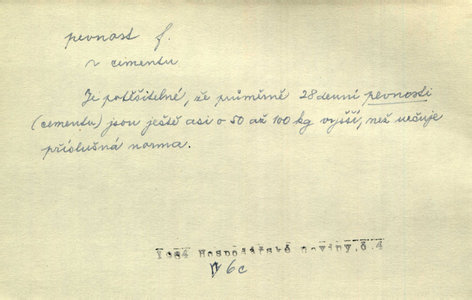 pevnost f.
~ cementu
Je potěšitelné, že průměrné 28denní pevnosti
(cementu) jsou ještě asi o 50 až 100 kg vyšší, než určuje
příslušná norma.
Hospodářské noviny, č. 4
6c